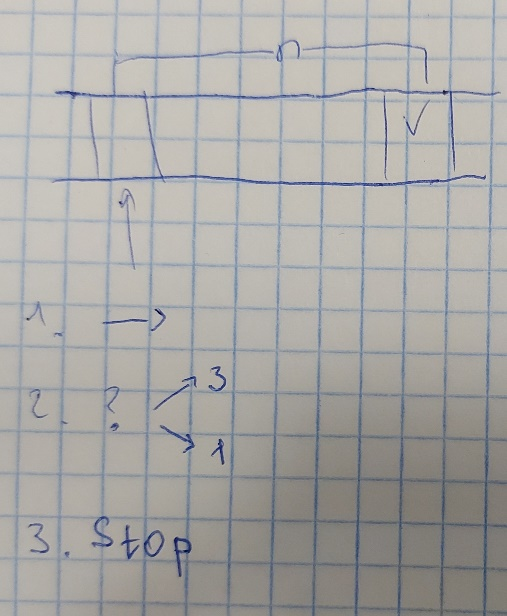 n
V
1. →
2. ? 3
1
3. Stop